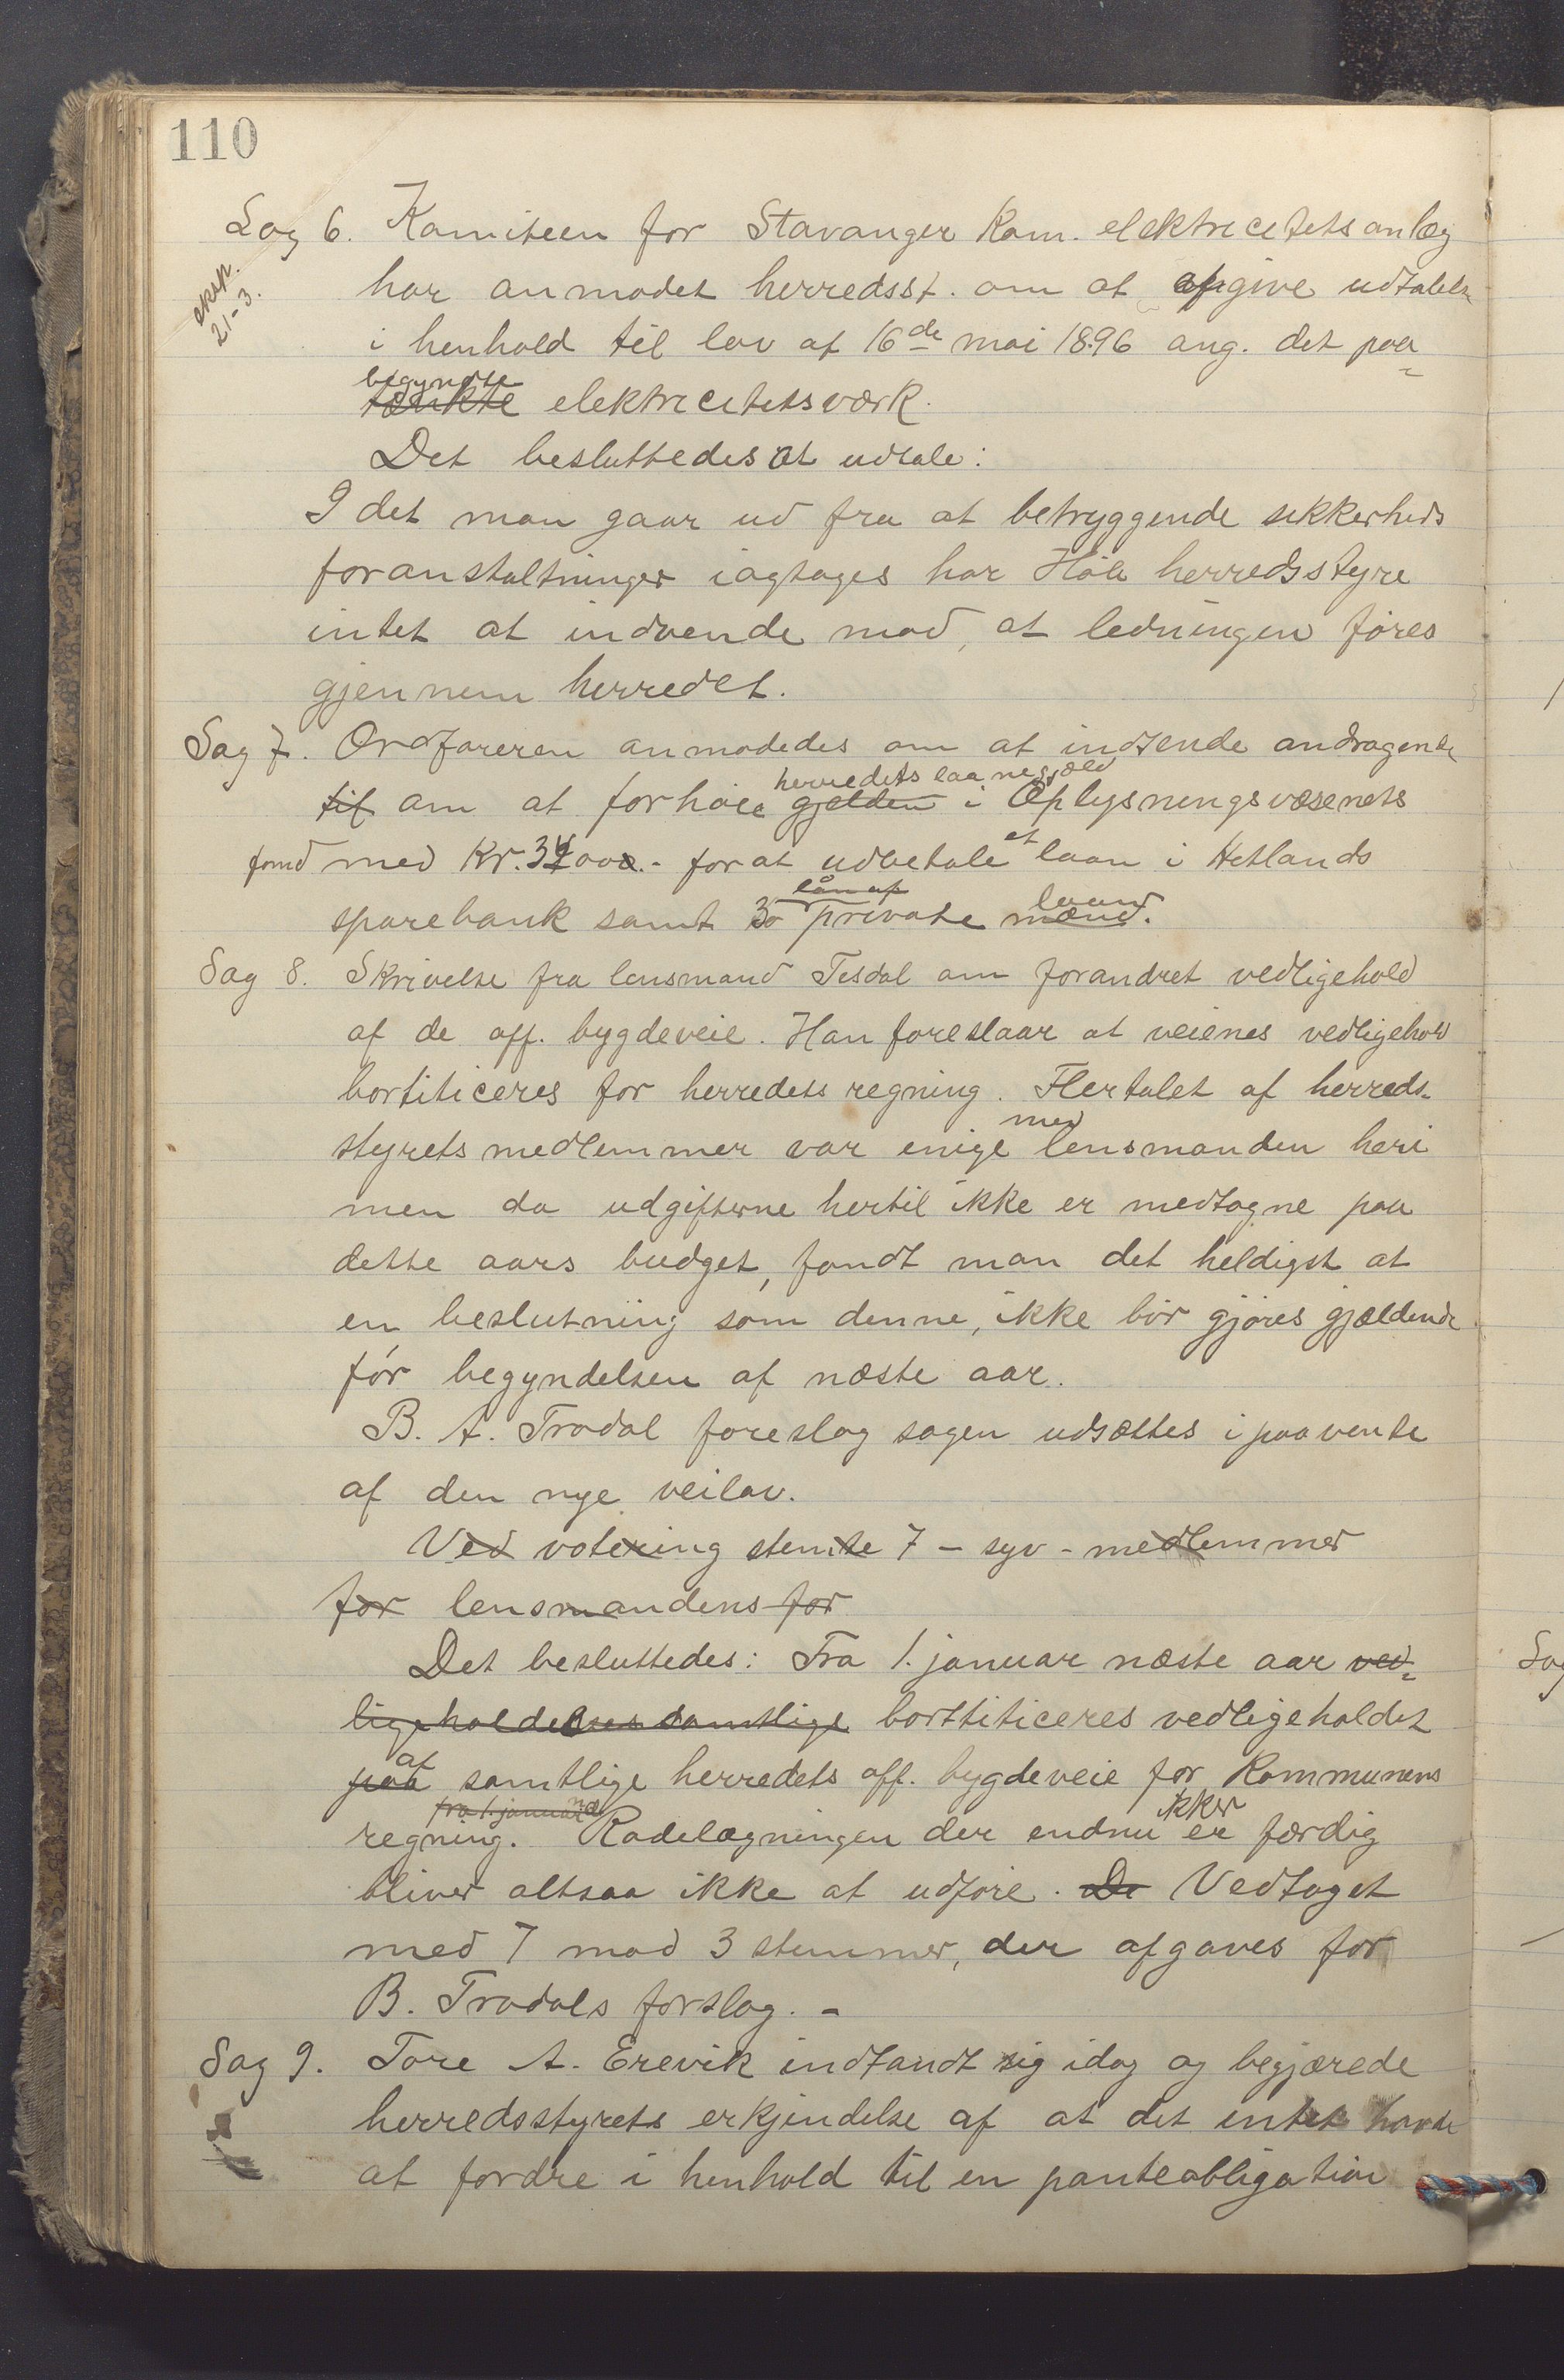 110
Sag 6. Komiteen for Stavanger Kom. elektricetetsanlæg
eksp.
21-3.
har anmodet herredsst. om at afgive udtalelse
i henhold til lov af 16de mai 1896 ang. det paa-
begyndte
tænkte elektricetetsværk.
Det besluttedes at udtale:
I det man gaar ud fra at betryggende sikkerheds
foranstaltninger iagtages har Høle herredsstyre
intet at indvende mod, at ledningen føres
gjennem herredet.
Sag 7. Ordføreren anmodedes om at indsende andragende
herredets laanegjæld
til om at forhøie gjelden i Oplysningsvæsenets
fond med Kr. for at udbetale et laan i Hetlands
lån af laan
sparebank samt 3 private mænd.
Sag 8. Skrivelse fra lensmand Tesdal om forandret vedligehold
af de off. bygdeveie. Han foreslaar at veienes vedligehold
bortliciteres for herredets regning. Flertalet af herreds-
med
styrets medlemmer var enige lensmanden heri
men da udgifterne hertil ikke er medtagne paa
dette aars budget, fandt man det heldigst at
en beslutning som denne, ikke bør gjøres gjældende
før begyndelsen af næste aar.
B. A. Trodal foreslog sagen udsættes i paavente
af den nye veilov.
Ved votering stemte 7 - syv - medlemmer
for lensmandens for
Det besluttedes: Fra 1. januar næste aar ved-
ligeholdelses samtlige bortliticeres vedligeholdet
af
paa samtlige herredets off. bygdeveie for Kommunens
fra 1. januar næ ikke
regning. Rodelægningen der endnu er færdig
bliver altsaa ikke at udføre. De Vedtaget
med 7 mod 3 stemmer, der afgaves for
B. Trodals forslag. -
Sag 9. Tore A. Erevik indfandt sig idag og begjærede
herredsstyrets erkjendelse af at det intet havde
at fordre i henhold til en panteobligation